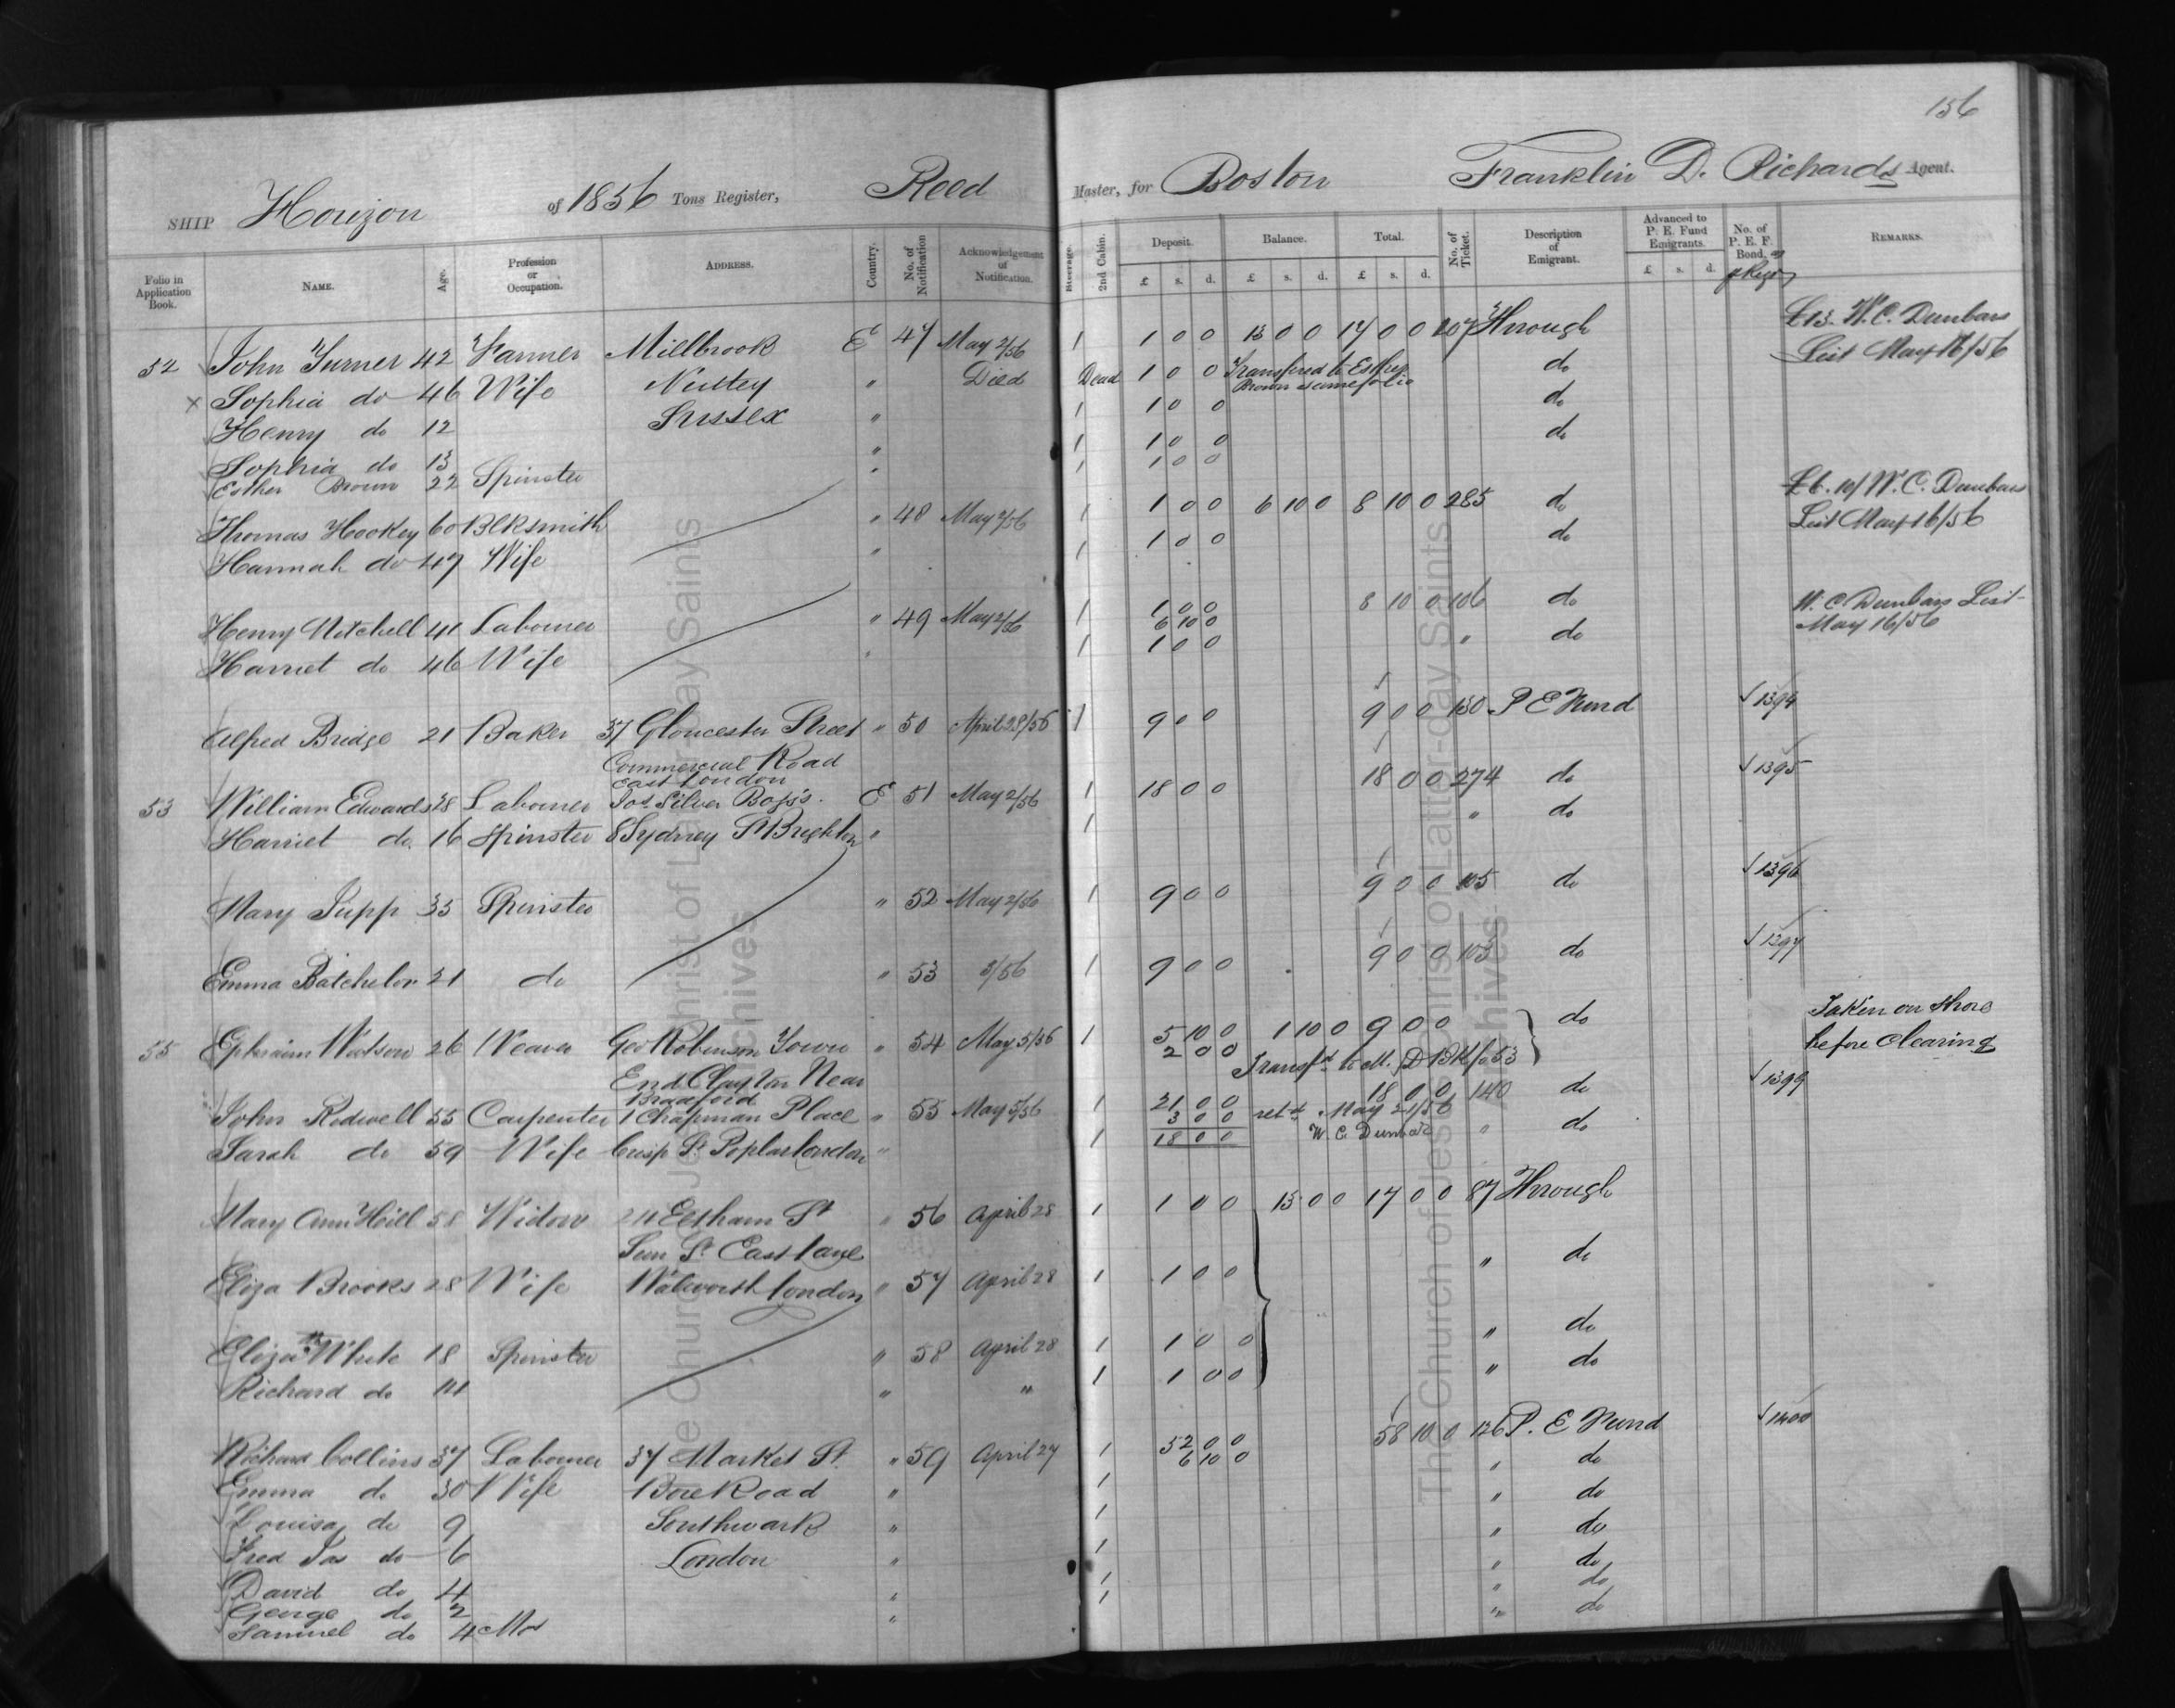 156
SHIP Horizon of 1856 Tons Register, Reed Master, for Boston Franklin D. Richards Agent.
Folio in Application Book. NAME. Age. Profession or Occupation. ADDRESS. Country. No. of Notification Acknowledgement of Notification. Steerage. 2nd Cabin. Deposit. Balance. Total. No. of Ticket. Description of Emigrant. Advanced to P. E. Fund Emigrants. No. of P. E. F. Bond. REMARKS.
£ s. d. £ s. d. £ s. d. £ s. d.
52 John Turner 42 Farmer Millbrook E 47 May 2/56 1 1 0 0 13 0 0 17 0 0 207 Through £13. W. C. Dunbars
List May 16/56
x Sophia do 46 Wife Nutley " Died Dead 1 0 0 Transfered to Esther do
Brown same folio
Henry do 12 Sussex " 1 1 0 0 do
Sophia do 13 " 1 1 0 0 do
Esther Brown 22 Spinster " 1 1 0 0
Thomas Hookey 60 Blksmith " 48 May 2/56 1 1 0 0 6 10 0 8 10 0 285 do £6.10/ W. C. Dunbars
List May 16/56
Hannah do 47 Wife " 1 1 0 0 do
Henry Mitchell 41 Labourer " 49 May 2/56 1 1 0 0 8 10 0 106 do W. C Dunbars List
6 10 0 May 16/56
Harriet do 46 Wife " 1 1 0 0 " do
Alfred Bridge 21 Baker 37 Gloucester Street " 50 April 28/56 1 9 0 0 9 0 0 130 P E Fund 1394
Commercial Road
East London
53 William Edwards 28 Labourer Jos. Silver E 51 May 2/56 1 18 0 0 18 0 0 274 do 1395
Harriet do. 16 Spinster 8 Sydney St Brighton " 1 " do
Mary Jupp 35 Spinster " 52 May 2/56 1 9 0 0 9 0 0 105 do 1396
Emma Batchelor 21 do " 53 3/56 1 9 0 0 9 0 0 103 do 1397
55 Ephraim Watson 26 Weaver Geo Robinson Town " 54 May 5/56 1 5 10 0 1 10 0 9 0 0 do Taken on Shore
2 0 0 before Clearing
End Clayton Near
Bradford
John Rodwell 55 Carpenter 1 Chapman Place " 55 May 5/56 1 21 0 0 18 0 0 140 do 1399
3 0 0 retd. May 21/56
Sarah do 59 Wife Crisp St. Poplar London " 1 18 0 0 W. C Dunbar " do
Mary Ann Hill 58 Widow 24 Eltham St " 56 April 28 1 1 0 0 13 0 0 17 0 0 87 Through
Sun St. East Lane
Eliza Brooks 28 Wife Walworth London " 57 April 28 1 1 0 0 " do
Elizath White 18 Spinster " 58 April 28 1 1 0 0 " do
Richard do 14 " " 1 1 0 0 " do
Richard Collins 37 Labourer 37 Market St. " 59 April 27 1 52 0 0 58 10 0 126 P. E Fund 1400
6 10 0
Emma do 30 Wife Boro Road " 1 " do
Louisa do 9 Southwark " 1 " do
Fred Jas do 6 London " 1 " do
David do 4 1 " do
George do 2 " 1 " do
Samuel do 4 Mos " " do
The Church of Jesus Christ of Latter-day Saints
Archives